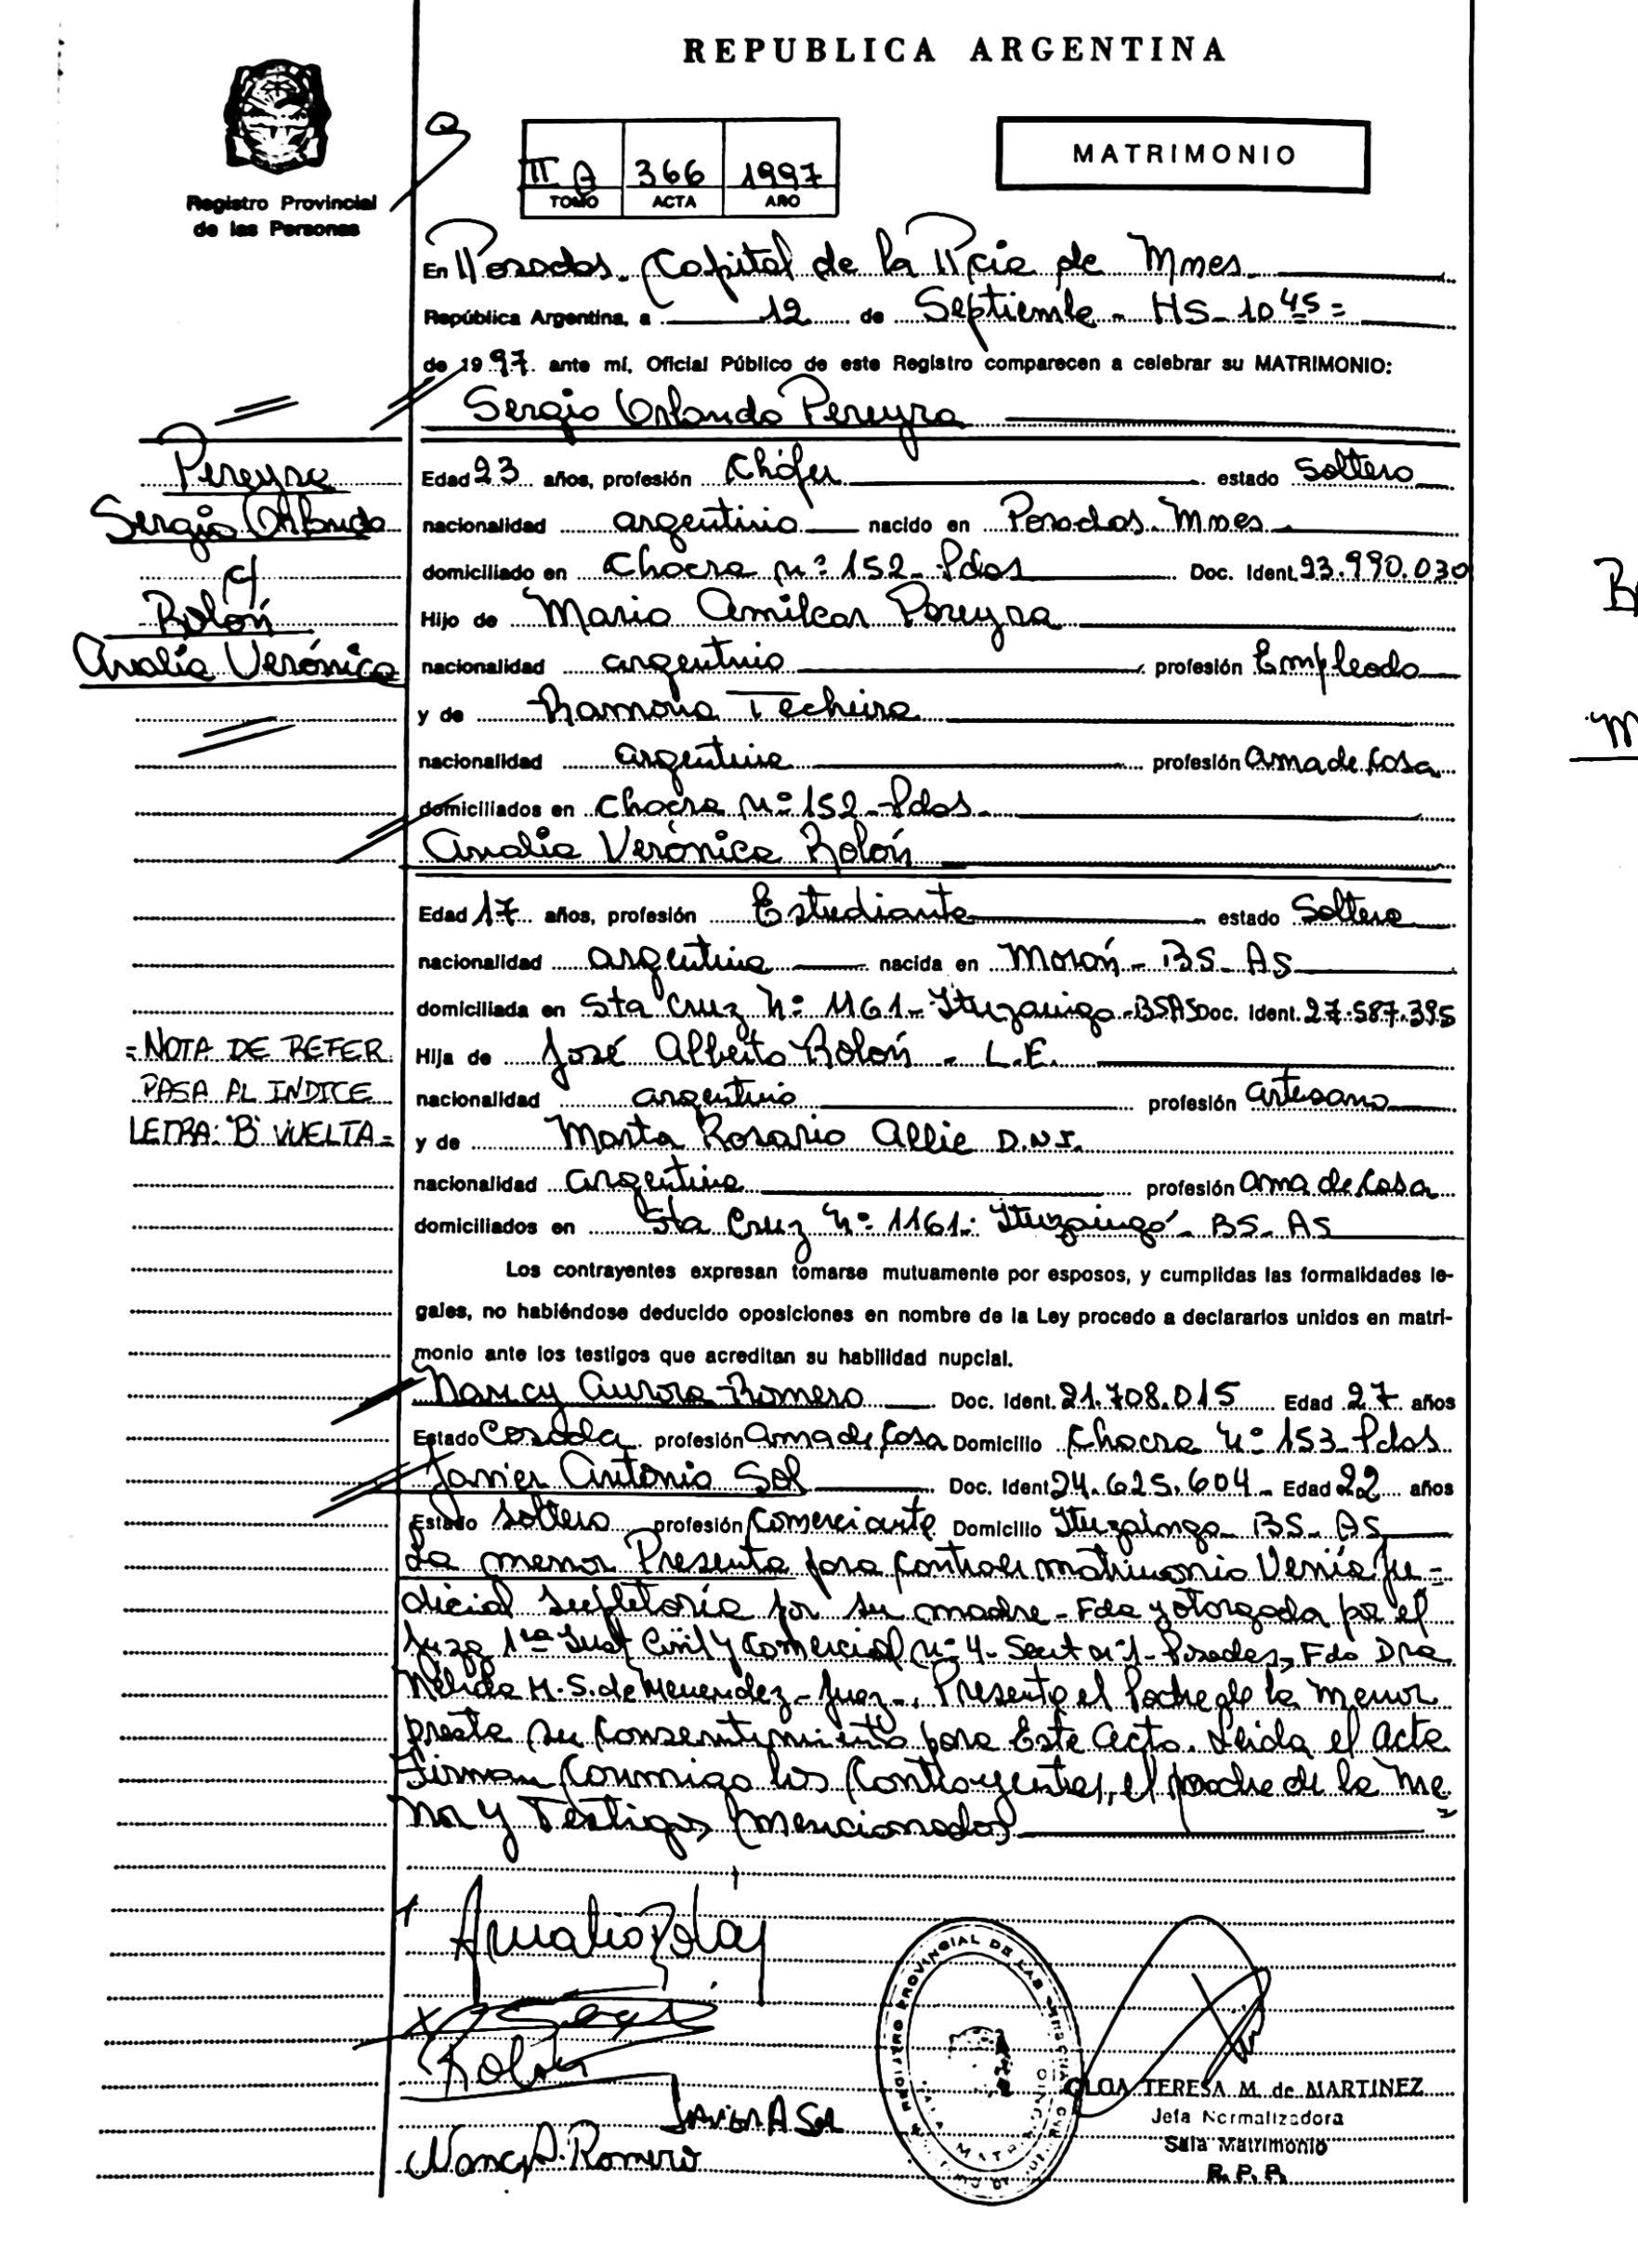 REPUBLICA ARGENTINA
Registro Provincial
de las Personas
II A 366 1997
TOMO ACTA AÑO
MATRIMONIO
En Posadas - Capital de la Pcia de Mnes
República Argentina, a 12 de Septiembre - HS - 10 45 =
de 1997 ante mí, Oficial Público de este Registro comparecen a celebrar su MATRIMONIO:
Sergio Orlando Pereyra
Pereyra
Sergio Orlando
c/
Rolón
Analía Verónica
Edad 23 años, profesión Chófer estado Soltero
nacionalidad argentino nacido en Posadas - Mnes
domiciliado en Chacra Nº 152 - Pdas Doc. Ident. 23.990.030
Hijo de Mario Amilcar Pereyra
nacionalidad argentino profesión Empleado
y de Ramona Techeira
nacionalidad argentina profesión ama de Casa
domiciliados en Chacra Nº 152 - Pdas -
Analía Verónica Rolón
Edad 17 años, profesión Estudiante estado Soltera
nacionalidad argentina nacida en Morón - BS - AS
domiciliada en Sta Cruz Nº 1161 - Ituzaingo - BSAS Doc. Ident. 27.587.395
Hija de José Alberto Rolón - L.E.
nacionalidad argentino profesión artesano
y de Marta Rosario Allie D.N.I.
nacionalidad argentina profesión ama de Casa
domiciliados en Sta Cruz Nº 1161 - Ituzaingó - BS - AS
= NOTA DE REFER
PASA AL INDICE
LETRA: "B" VUELTA =
Los contrayentes expresan tomarse mutuamente por esposos, y cumplidas las formalidades le-
gales, no habiéndose deducido oposiciones en nombre de la Ley procedo a declararlos unidos en matri-
monio ante los testigos que acreditan su habilidad nupcial.
Nancy Aurora Romero Doc. Ident. 21.708.015 Edad 27 años
Estado Casada profesión ama de Casa Domicilio Chacra Nº 153 - Pdas
Javier Antonio Sol Doc. Ident 24.625.604 - Edad 22 años
Estado soltero profesión Comerciante Domicilio Ituzaingo - BS - AS
La menor Presenta para contraer matrimonio Venia Ju-
dicial supletoria por su madre - Fda y otorgada por el
Juzg 1ra Inst Civil y Comercial Nº 4 - Secret nº 1 - Posadas, Fdo Dra
Nélida M. S. de Menendez - Juez - Presente el Padre de la menor
presta su consentimiento para Este Acto. Leida el acta
Firman Conmigo los Contrayentes, el padre de la me
nor y Testigos mencionados
Analia Rolón
Rolón
Javier A Sol
Nancy A. Romero
REGISTRO PROVINCIAL DE LAS PERSONAS
OLGA TERESA M. de MARTINEZ
Jefa Normalizadora
Sala Matrimonio
R. P. P.